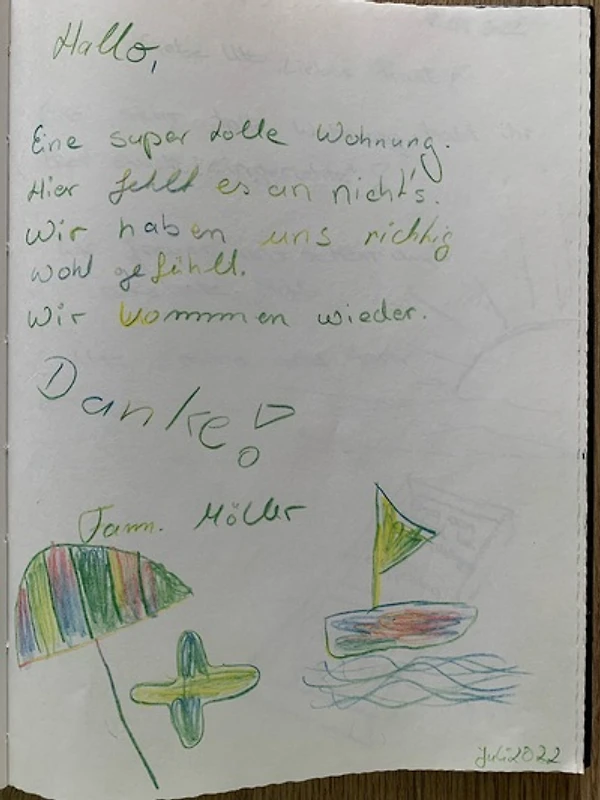 Hallo,
Eine super tolle Wohnung.
Hier fehlt es an nichts.
Wir haben uns richtig
wohl gefühlt.
Wir kommen wieder.
Danke!
Fam. Möller
Juli 2022